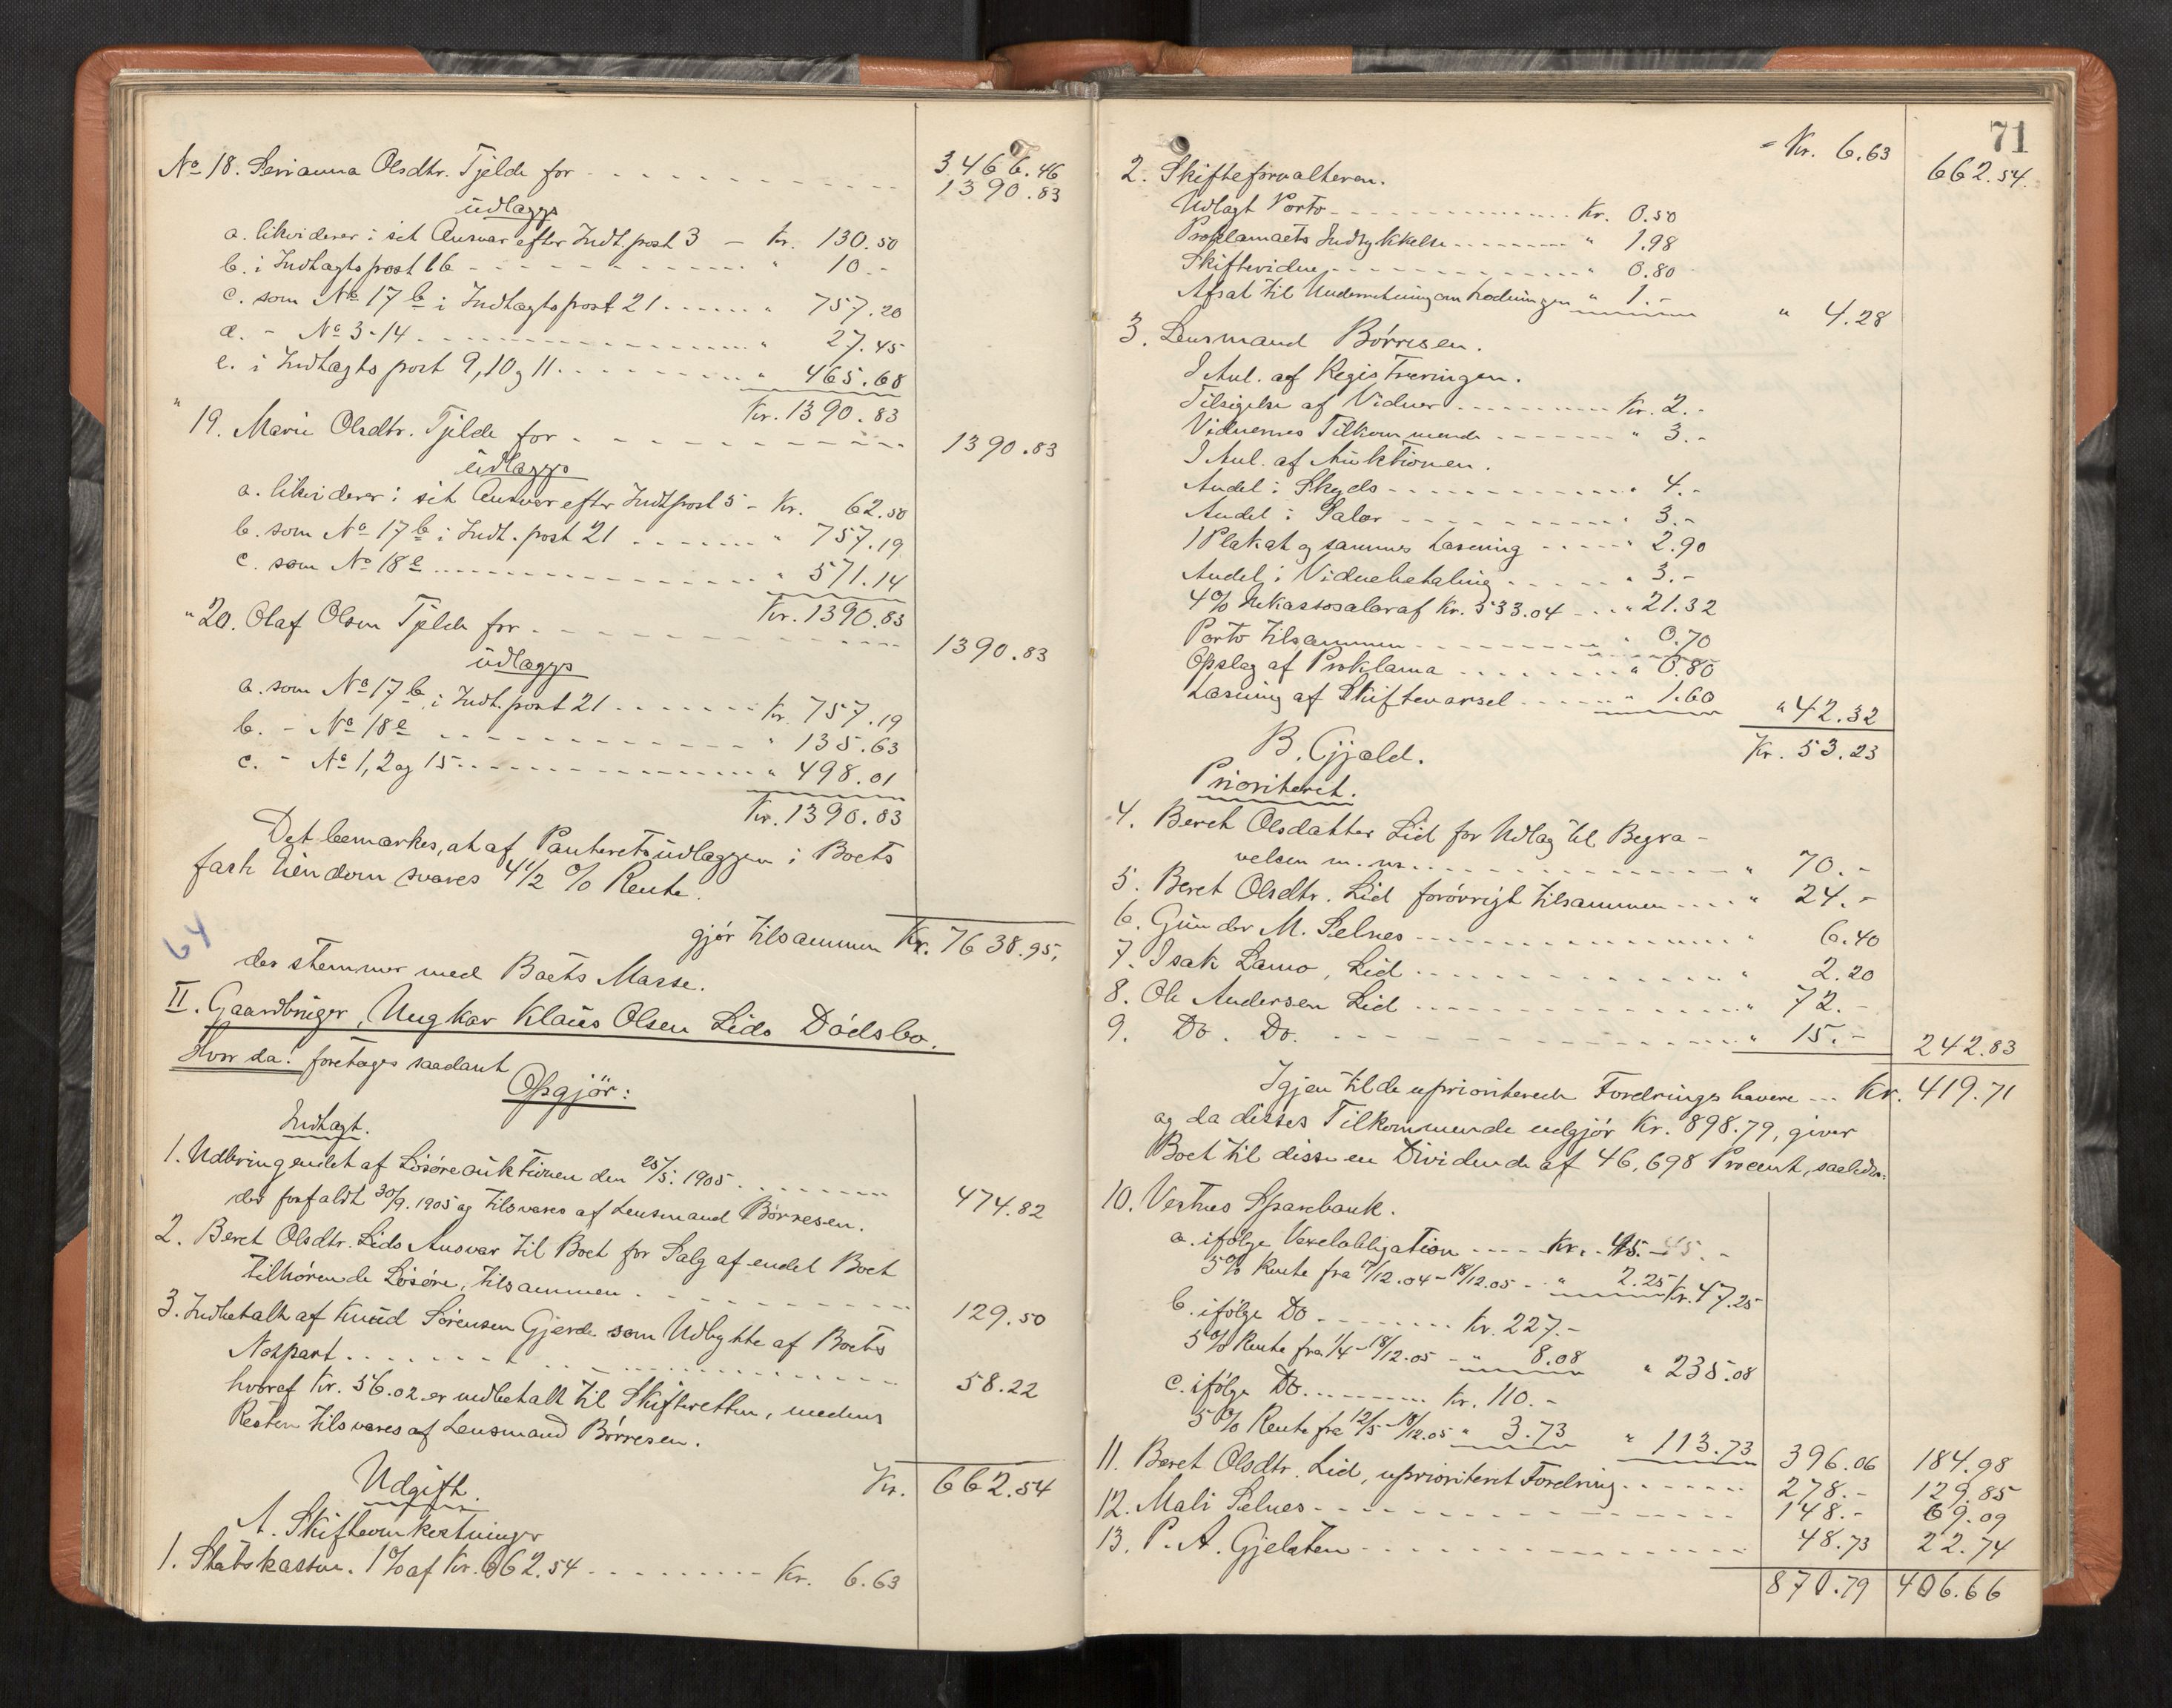 3466.46
No 18. Serianna Olsdtr. Tjelde for 1390.83
udlægges
a. likviderer i sit Ansvar efter Indt. post 3 - Kr. 130.50
b. i Indtægtspost 16 " 10.-
c. som No 17 b i Indtægtspost 21 " 757.20
d. - No 3-14 " 27.45
e. i Indtægts post 9, 10 og 11 " 465.68
Kr. 1390.83
" 19. Marie Olsdtr. Tjelde for 1390.83
udlægges
a. likviderer i sit Ansvar efter Indt post 5 - Kr. 62.50
b. som No 17 b i Indt. post 21 " 757.19
c. som No 18 e " 571.14
Kr. 1390.83
" 20. Olaf Olsen Tjelde for 1390.83
udlægges
a. som No 17 b i Indt. post 21 Kr. 757.19
b. - No 18 e " 135.63
c. - No 1, 2 og 15 " 498.01
Kr. 1390.83
Det bemærkes, at af Panteretsudlæggene i Boets
faste Eiendom svares 4 1/2 % Rente.
gjør tilsammen Kr. 7638.95,
64
der stemmer med Boets Masse.
II. Gaardbruger, Ungkar Klaus Olsen Lids Dødsbo.
Hvor da: foretoges saadant
Opgjør:
Indtægt.
1. Udbringendet af Løsøreauktionen den 25/5. 1905
der forfaldt 30/9. 1905 og tilsvares af Lensmand Børresen. 474.82
2. Beret Olsdtr. Lids Ansvar til Boet for Salg af endel Boet
tilhørende Løsøre, tilsammen 129.50
3. Indbetalt af Knud Sørensen Gjerde som Udbytte af Boets
Notpart 58.22
hvoraf Kr. 56.02 er indbetalt til Skifteretten, medens
Resten tilsvares af Lensmand Børresen.
Kr. 662.54
Udgift.
A. Skifteomkostninger
1. Statskassen. 1 % af Kr. 662.54 Kr. 6.63
71
= Kr. 6.63 662.54.
2. Skifteforvalteren.
Udlagt Porto Kr. 0.50
Proklamaets Indrykkelse " 1.98
Skiftevidner " 0.80
Afsat til Underretning om Lodningen " 1.- " 4.28
3. Lensmand Børresen.
I Anl. af Registreringen.
Tilsigelse af Vidner Kr. 2.-
Vidnernes Tilkommende " 3.-
I Anl. af Auktionen.
Andel i Skyds " 4.-
Andel i Salær " 3.-
1 Plakat og sammes Læsning " 2.90
Andel i Vidnebetaling " 3.-
4 % Inkassosalær af Kr. 533.04 " 21.32
Porto tilsammen " 0.70
Opslag af Proklama " 0.80
Læsning af Skiftevarsel " 1.60 " 42.32
B. Gjæld. Kr. 53.23
Prioriteret.
4. Beret Olsdatter Lid for Udlæg til Begra-
velsen m. m. " 70.-
5. Beret Olsdtr. Lid forøvrigt tilsammen " 24.-
6. Gunder M. Selnes " 6.40
7. Isak Lamo, Lid " 2.20
8. Ole Andersen Lid " 72.-
9. Do. Do. " 15.- 242.83
Igjen til de uprioriterede Fordringshavere Kr. 419.71
og da disses Tilkommende udgjør Kr. 898.79, giver
Boet til disse en Dividende af 46,698 Procent, saaledes:
10. Vestnes Sparebank.
a. ifølge Vexelobligation Kr. 45.-
5 % Rente fra 17/12.04 - 18/12.05 " 2.25 Kr. 47.25
b. ifølge Do Kr. 227.-
5 % Rente fra 1/4 - 18/12.05 " 8.08 " 235.08
c. ifølge Do. Kr. 110.-
5 % Rente fra 12/5 - 18/12.05 " 3.73 " 113.73 396.06 184.98
11. Beret Olsdtr. Lid, uprioriteret Fordring 278.- 129.85
12. Mali Selnes 148.- 69.09
13. P. A. Gjelsten 48.73 22.74
870.79 406.66